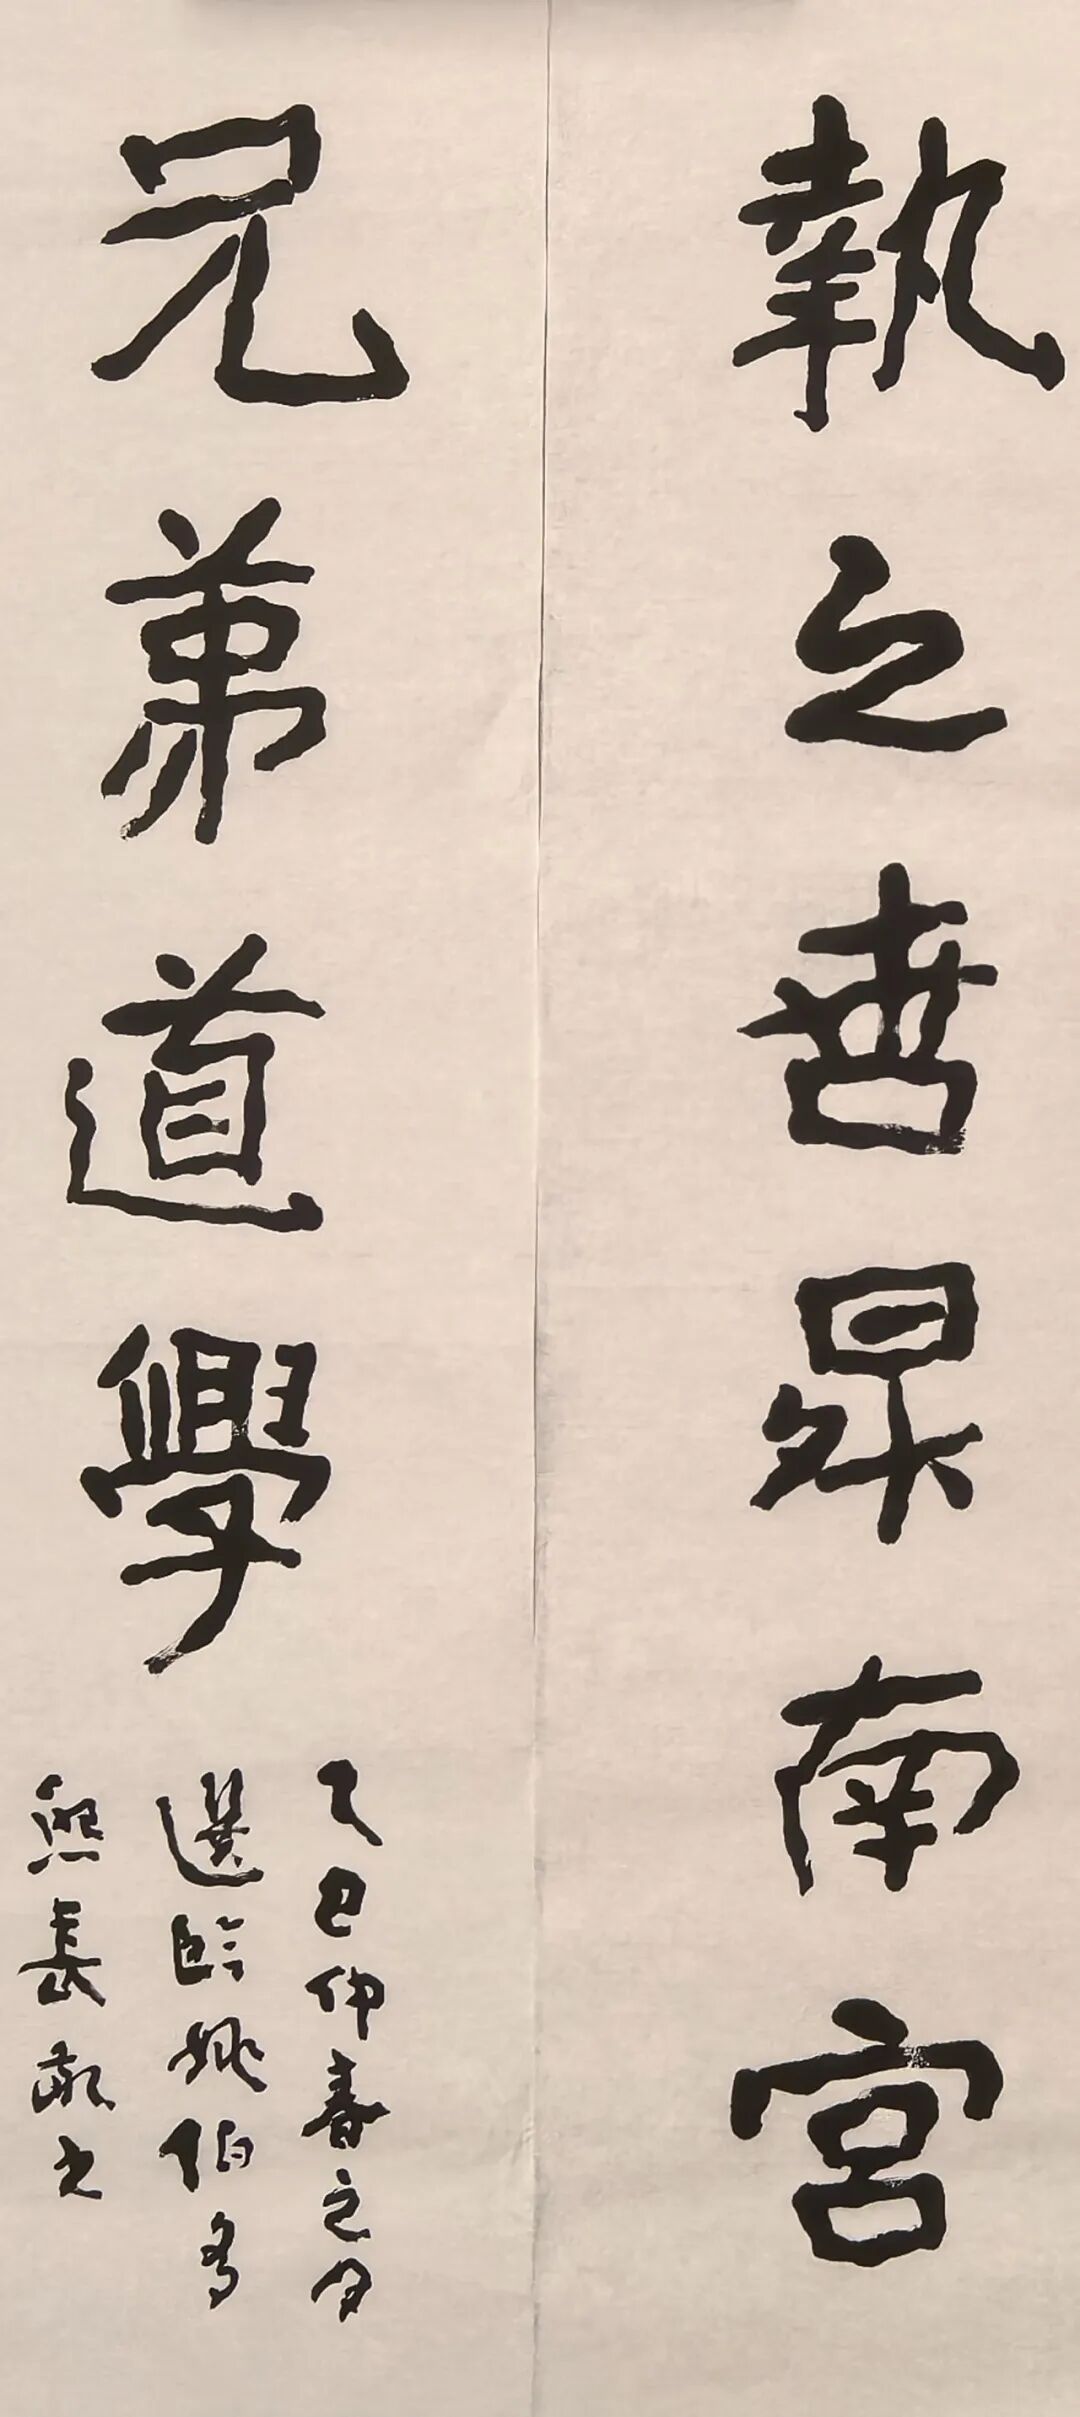 執之善昇南宮
兄弟道學
乙巳仲春之月
選臨姚伯多
熊長敬之